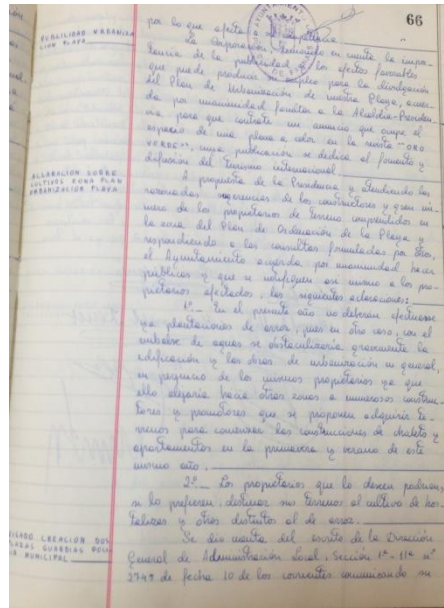 66
PUBLICIDAD URBANIZA-
CION PLAYA.
por lo que afecta a
La Corporación, teniendo en cuenta la impor-
tancia de la publicidad y los efectos favorables
que puede producir su empleo para la divulgación
del Plan de Urbanización de nuestra Playa, acuer-
da por unanimidad facultar a la Alcaldía-Presiden-
cia para que contrate un anuncio que ocupe el
espacio de una plana a color en la revista "ORO
VERDE", cuya publicación se dedica al fomento y
difusión del Turismo internacional.
ACLARACION SOBRE
CULTIVOS ZONA PLAN
URBANIZACION PLAYA.
A propuesta de la Presidencia y atendiendo las
sugerencias de los constructores y gran nú-
mero de los propietarios de terreno comprendidos en
la zona del Plan de Ordenación de la Playa y
respondiendo a las consultas formuladas por otros,
el Ayuntamiento acuerda, por unanimidad hacer
públicas y que se notifiquen así mismo a los pro-
pietarios afectados, las siguientes aclaraciones:
1º.— En el presente año no deberán efectuarse
ya plantaciones de arroz, pues en otro caso, con el
embalse de aguas se obstaculizaría gravemente la
edificación y las obras de urbanización en general,
en perjuicio de los mismos propietarios ya que
ello alejaría hacia otras zonas a numerosos construc-
tores y promotores que se proponen adquirir te-
rrenos para comenzar las construcciones de chalets y
apartamentos en la primavera y verano de este
mismo año.
2º.— Los propietarios que lo deseen podrían,
si lo prefieren, destinar sus terrenos al cultivo de hor-
talizas y otros distintos al de arroz.
CREACION DOS
PLAZAS GUARDIAS
MUNICIPAL
Se dio cuenta del escrito de la Dirección
General de Administración Local, Sección 1ª - 11ª nº
2749 de fecha 10 de los corrientes comunicando su